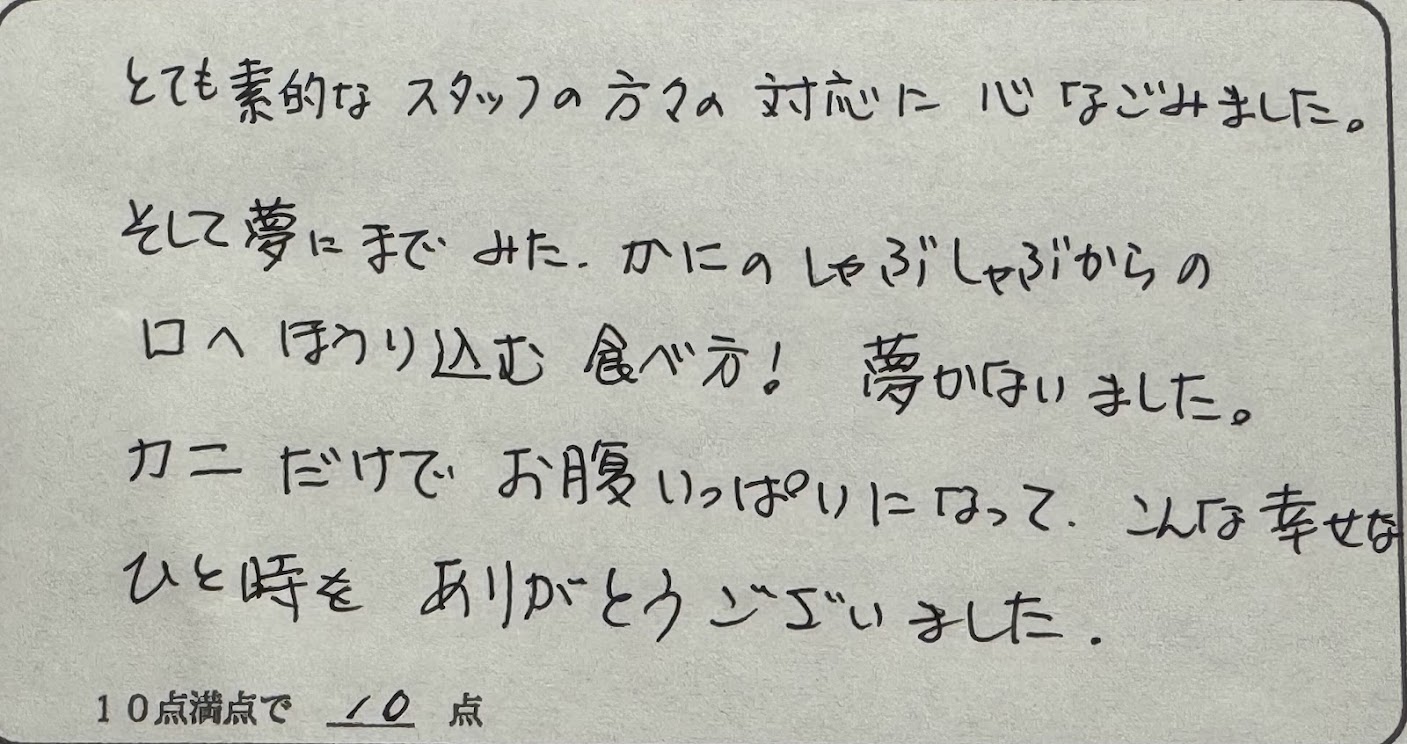 とても素的な スタッフの方々の 対応に 心なごみました。
そして夢にまで みた. かにの しゃぶしゃぶからの
口へ ほうり込む 食べ方! 夢かないました。
カニ だけで お腹いっぱいになって. こんな幸せな
ひと時を ありがとうございました.
10点満点で 10 点